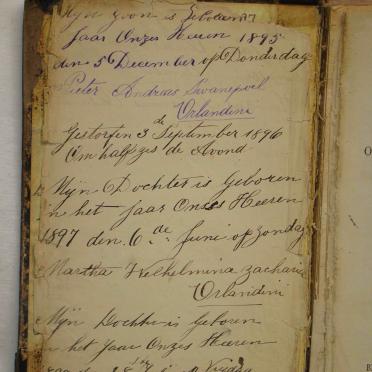 Mijn zoon is Geboren
Jaar Onzes Heeren 1895
den 5 December op Donderdag
Pieter Andreas Swanepoel
Orlandini
Gestorfen 3 de September 1896
Om half zes de Avond
Mijn Dochter is Geboren
in het Jaar Onzes Heeren
1897 den 6 de Juni op zondag
Martha Welhelmina zacharia
Orlandini
Mijn Dochter is Geboren
in het Jaar Onzes Heeren
Vrijdag
O